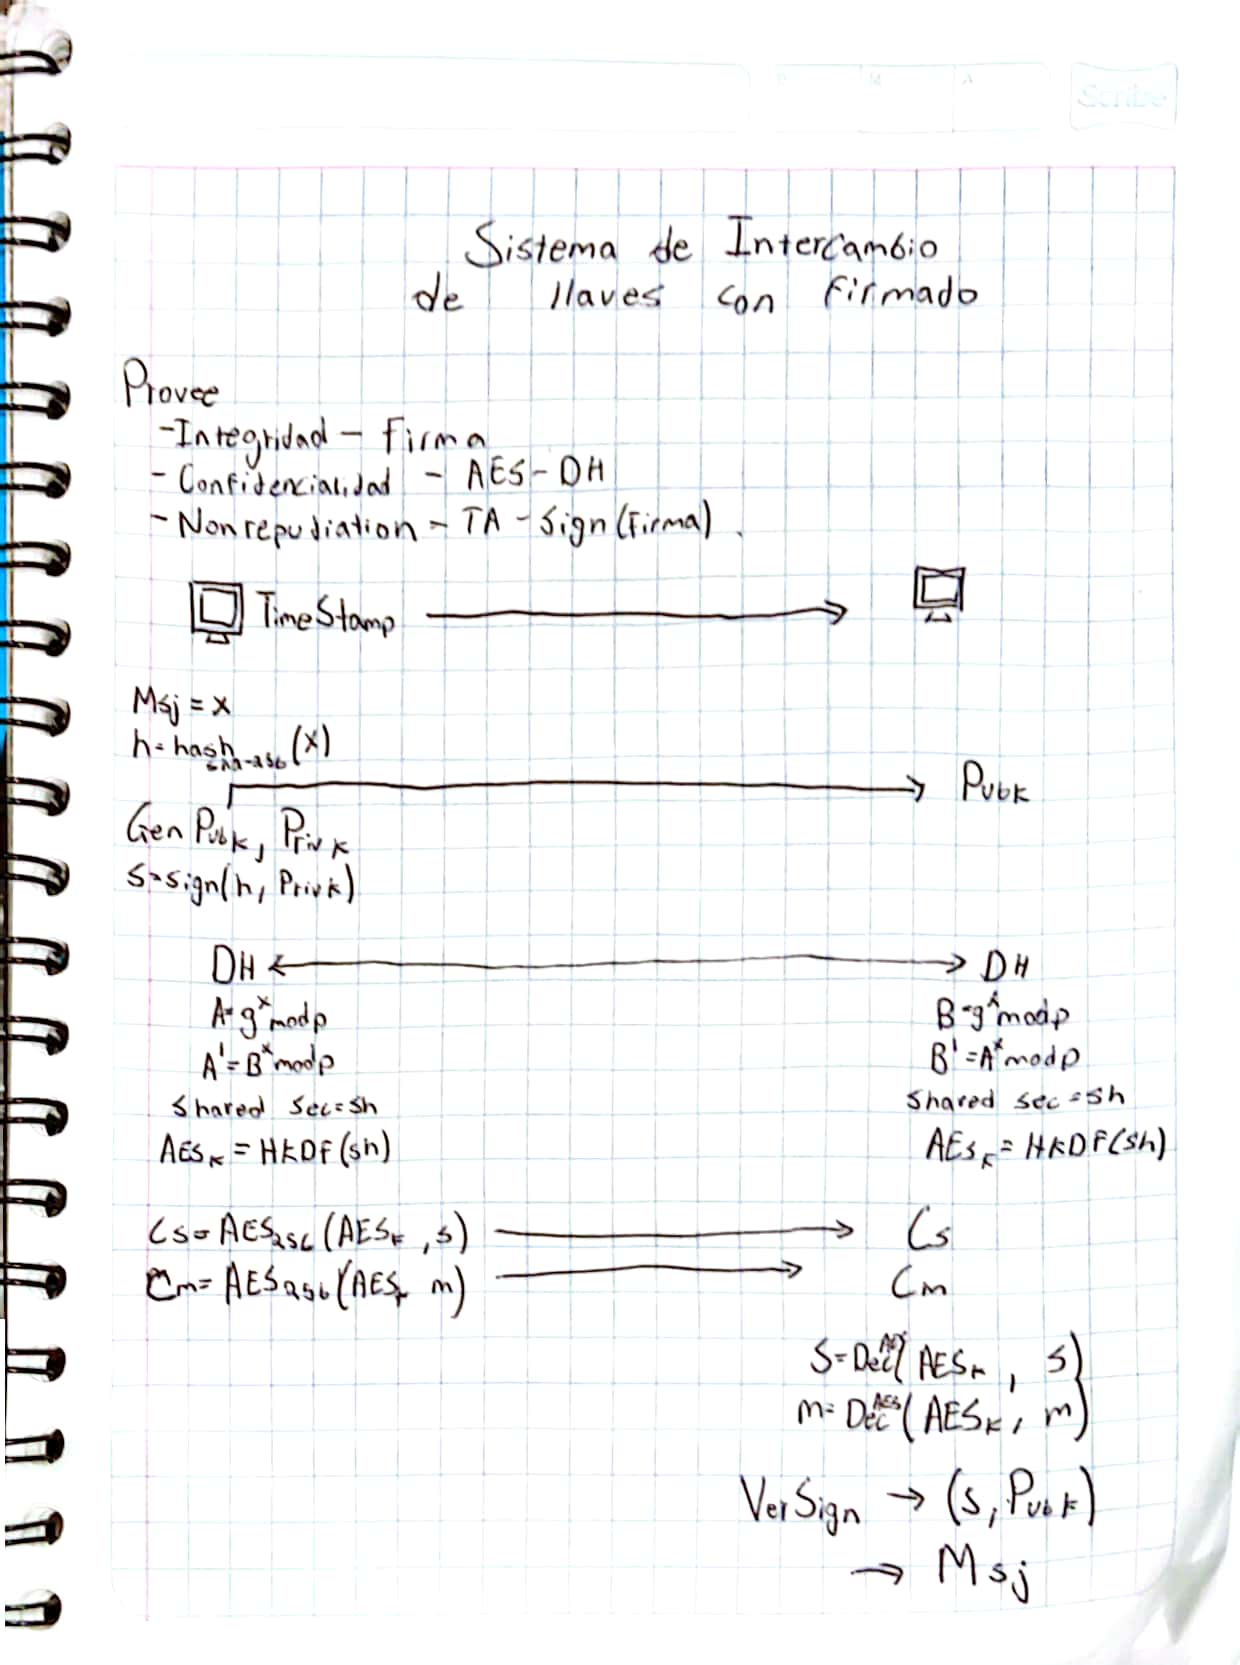 Scribe
D M A
Sistema de Intercambio
de llaves con firmado
Provee
- Integridad - Firma
- Confidencialidad - AES - DH
- Nonrepudiation - TA - Sign (Firma).
TimeStamp
Msj = x
h = hash sha-256 (x)
PubK
Gen PubK, PrivK
S = sign(h, PrivK)
DH DH
A = g^x mod p B = g^x mod p
A' = B^x mod p B' = A^x mod p
shared sec = sh shared sec = sh
AES_K = HKDF(sh) AES_K = HKDF(sh)
Cs = AES256 (AES_K, s) Cs
Cm = AES256 (AES_K m) Cm
S = Dec^AES (AES_K, s)
m = Dec^AES (AES_K, m)
VerSign → (s, PubK)
→ Msj